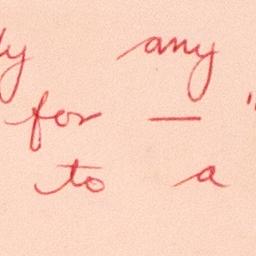 any
for — "
to a